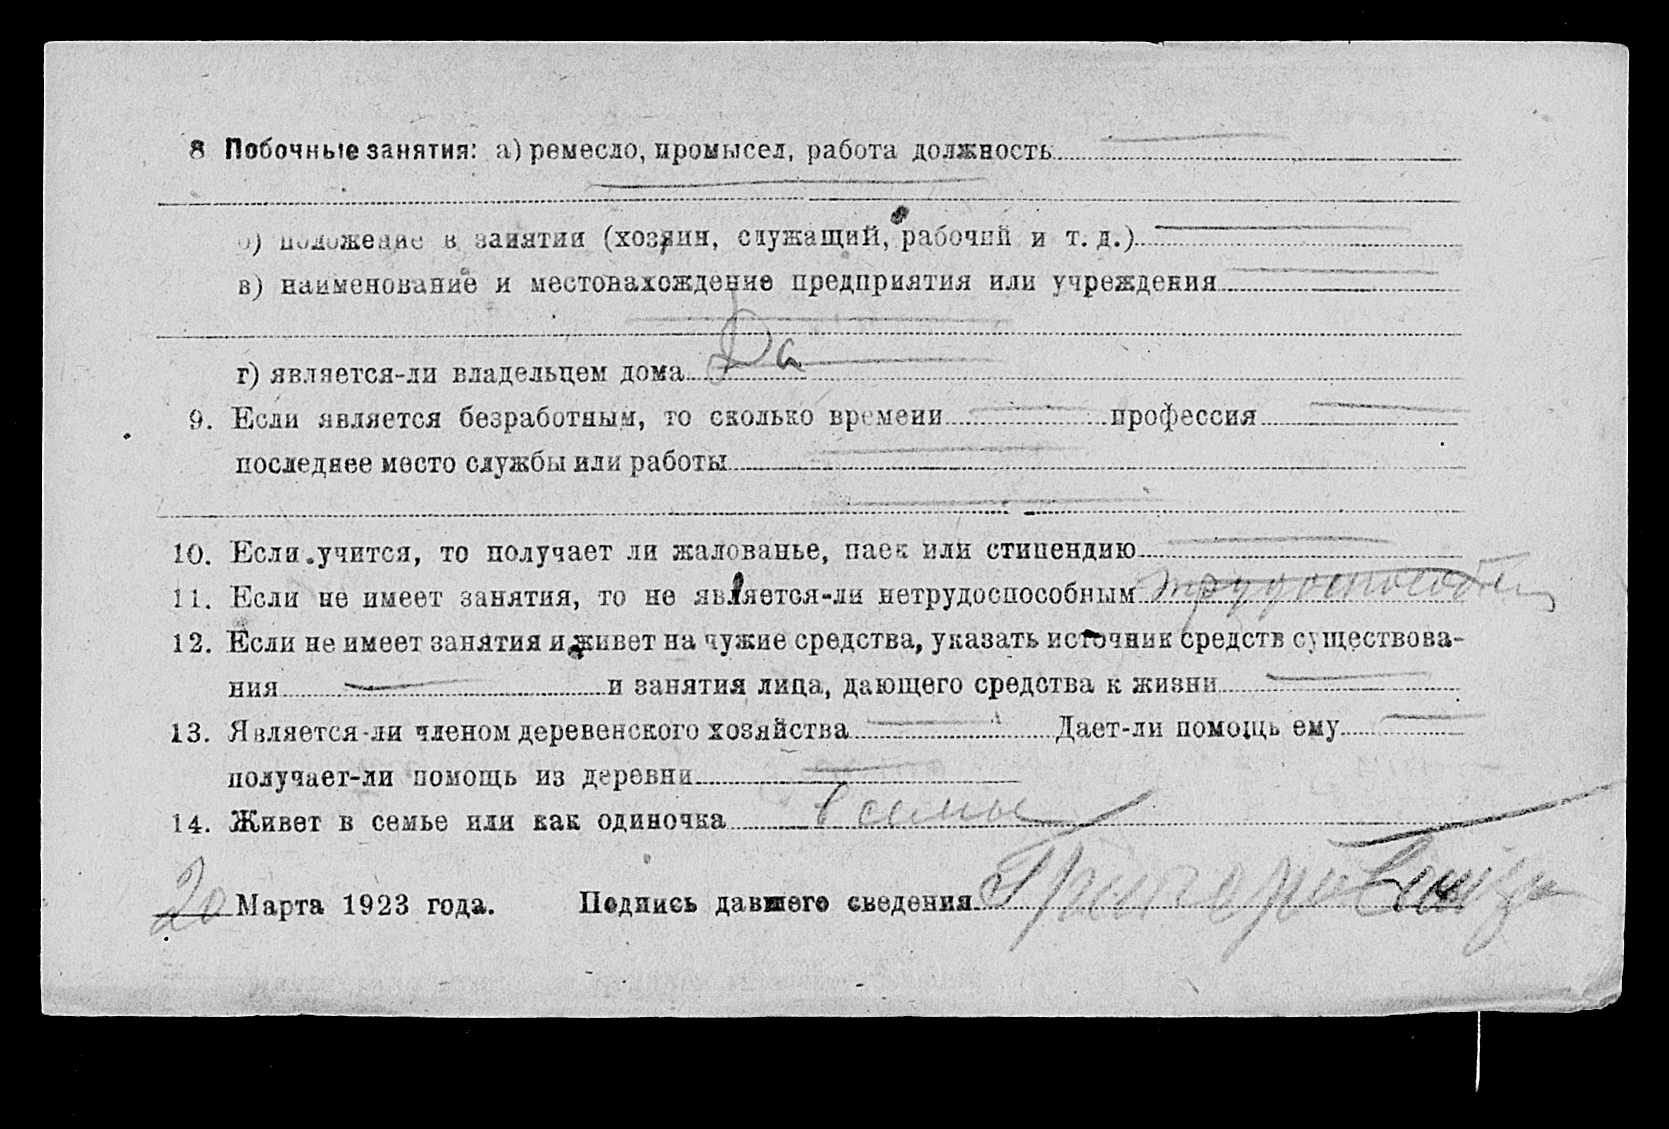 8 Побочные занятия: а) ремесло, промысел, работа должность
б) положение в занятии (хозяин, служащий, рабочий и т. д.)
в) наименование и местонахождение предприятия или учреждения
г) является-ли владельцем дома Да
9. Если является безработным, то сколько времени профессия
последнее место службы или работы
10. Если учится, то получает ли жалованье, паек или стипендию
11. Если не имеет занятия, то не является-ли нетрудоспособным трудоспособен
12. Если не имеет занятия и живет на чужие средства, указать источник средств существова-
ния и занятия лица, дающего средства к жизни
13. Является-ли членом деревенского хозяйства Дает-ли помощь ему
получает-ли помощь из деревни
14. Живет в семье или как одиночка в семье
20 Марта 1923 года. Подпись давшего сведения